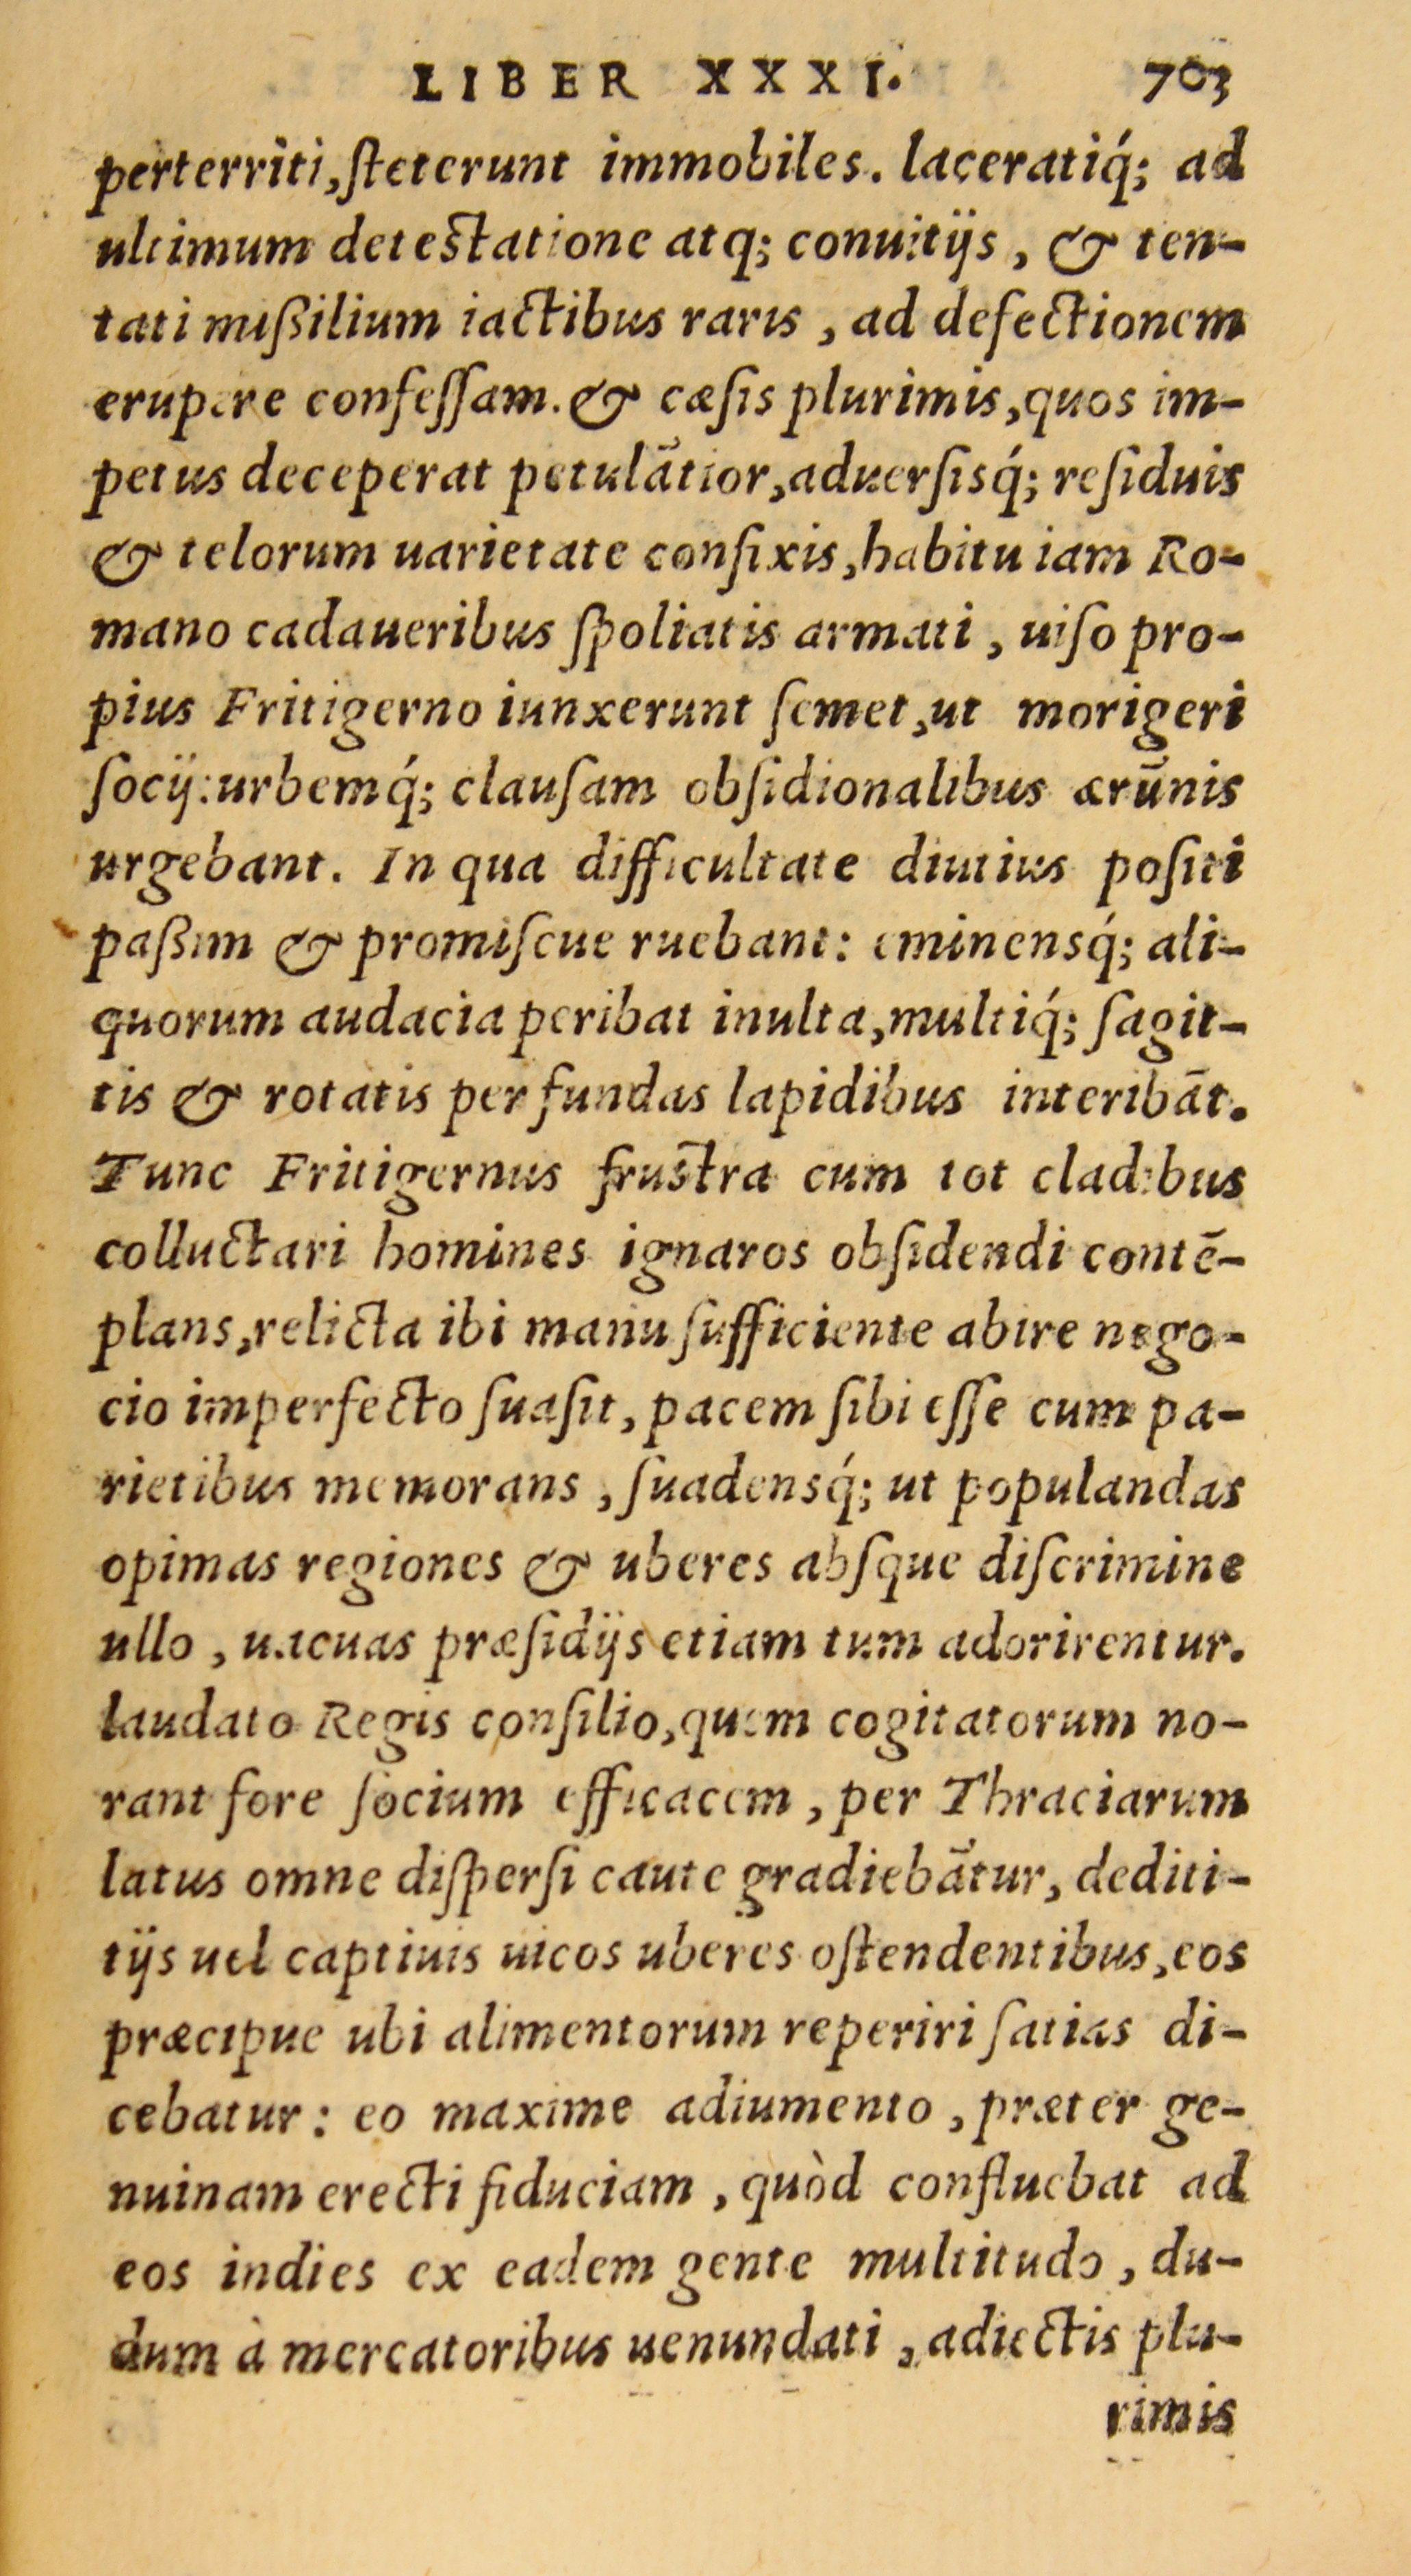 LIBER XXXI. 703
perterriti, ſteterunt immobiles. laceratiq́; ad
ultimum deteſtatione atq; conuitijs, & ten-
tati mißilium iactibus raris, ad defectionem
erupere confeſſam. & cæſis plurimis, quos im-
petus deceperat petulãtior, aduerſisq́; reſiduis
& telorum uarietate confixis, habitu iam Ro-
mano cadaueribus ſpoliatis armati, uiſo pro-
pius Fritigerno iunxerunt ſemet, ut morigeri
ſocij: urbemq́; clauſam obſidionalibus ærũnis
urgebant. In qua difficultate diutius poſiti
paßim & promiſcue ruebant: eminensq́; ali-
quorum audacia peribat inulta, multiq́; ſagit-
tis & rotatis per fundas lapidibus interibãt.
Tunc Fritigernus fruſtra cum tot cladibus
colluctari homines ignaros obſidendi contẽ-
plans, relicta ibi manu ſufficiente abire nego-
cio imperfecto ſuaſit, pacem ſibi eſſe cum pa-
rietibus memorans, ſuadensq́; ut populandas
opimas regiones & uberes abſque diſcrimine
ullo, uacuas præſidijs etiam tum adorirentur.
laudato Regis conſilio, quem cogitatorum no-
rant fore ſocium efficacem, per Thraciarum
latus omne diſperſi caute gradiebãtur, dediti-
tijs uel captiuis uicos uberes oſtendentibus, eos
præcipue ubi alimentorum reperiri ſatias di-
cebatur: eo maxime adiumento, præter ge-
nuinam erecti fiduciam, quòd confluebat ad
eos indies ex eadem gente multitudo, du-
dum à mercatoribus uenundati, adiectis plu-
rimis